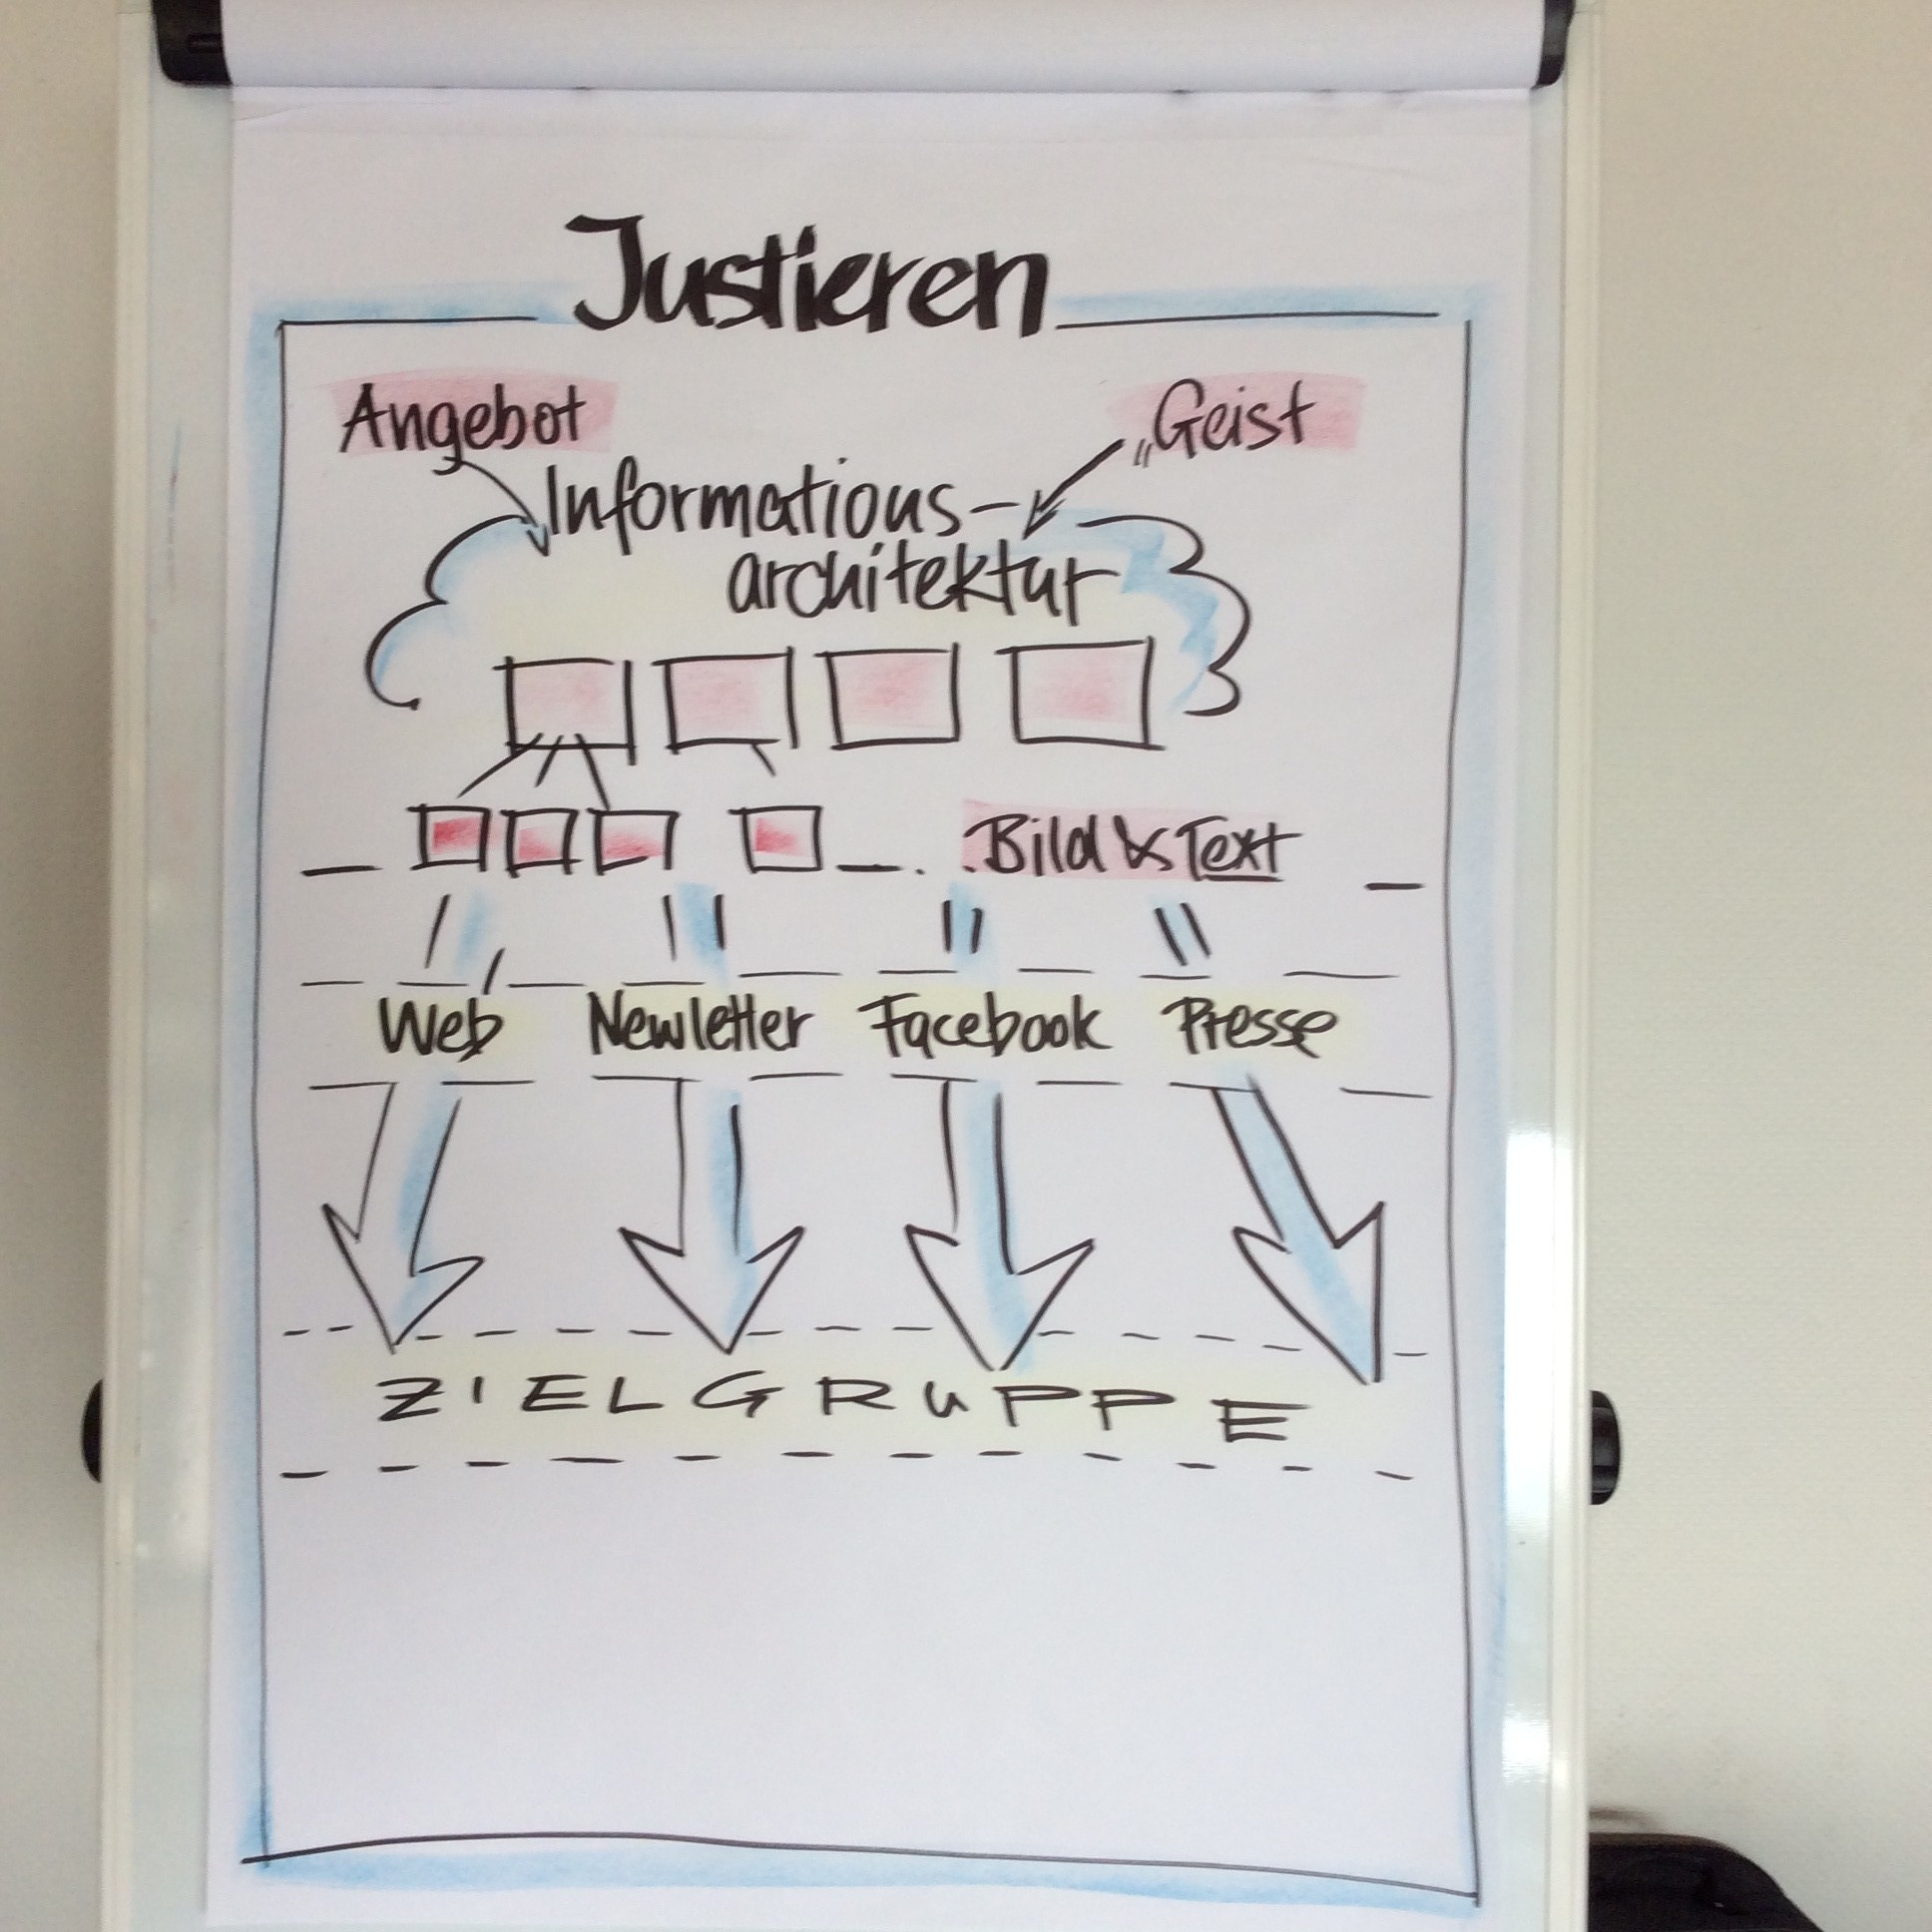 Justieren
Angebot
„Geist
Informations-
architektur
Bild & Text
Web Newletter Facebook Presse
ZIELGRUPPE